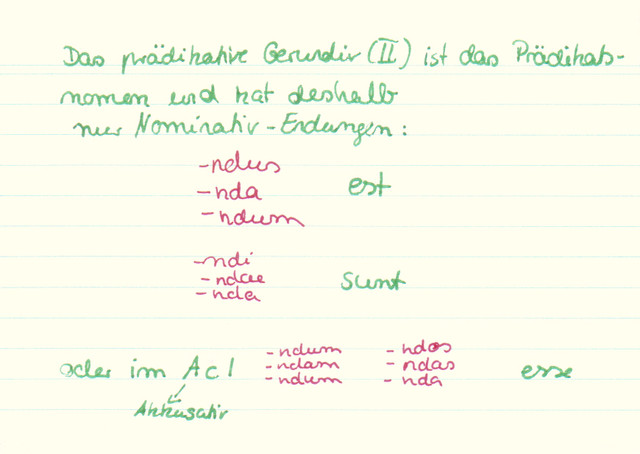 Das prädikative Gerundiv (II) ist das Prädikats-
nomen und hat deshalb
nur Nominativ-Endungen:
-ndus
-nda est
-ndum
-ndi
-ndae sunt
-nda
oder im AcI -ndum -ndos esse
-ndam -ndas
-ndum -nda
Akkusativ